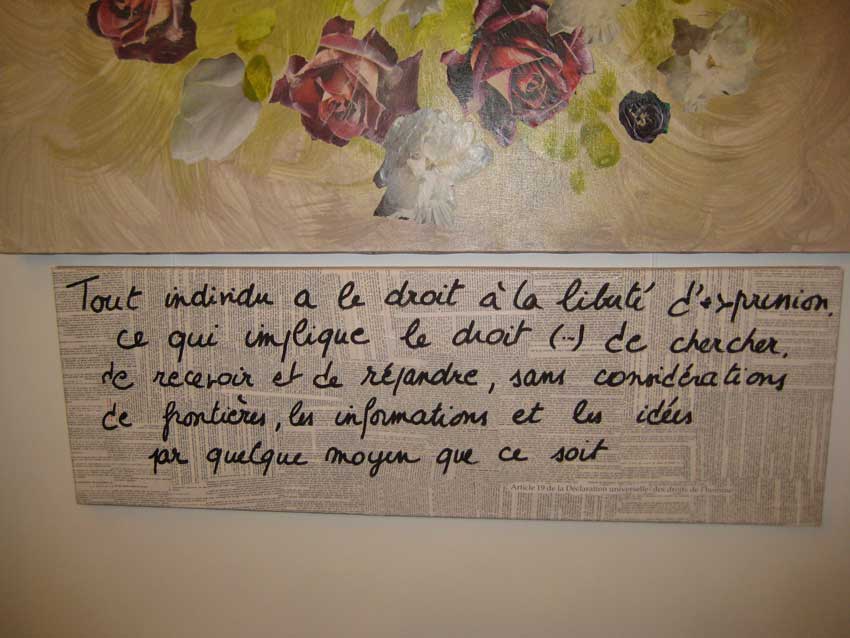 Tout individu a le droit à la liberté d'expression,
ce qui implique le droit (...) de chercher,
de recevoir et de répandre, sans considérations
de frontières, les informations et les idées
par quelque moyen que ce soit
Article 19 de la Déclaration universelle des droits de l'homme